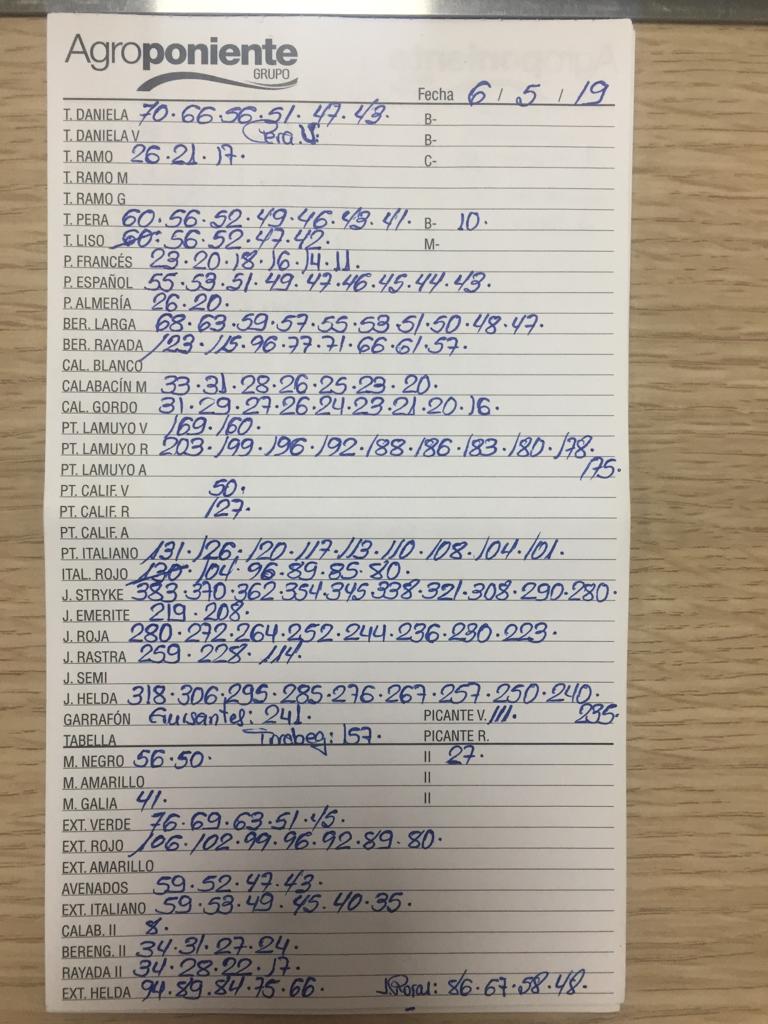 Agroponiente
GRUPO
Fecha 6 / 5 / 19
T. DANIELA 70·66·56·51·47·43· B-
T. DANIELA V Pera V: B-
T. RAMO 26·21·17· C-
T. RAMO M
T. RAMO G
T. PERA 60·56·52·49·46·43·41· B- 10·
T. LISO 60·56·52·47·42· M-
P. FRANCÉS 23·20·18·16·14·11·
P. ESPAÑOL 55·53·51·49·47·46·45·44·43·
P. ALMERÍA 26·20·
BER. LARGA 68·63·59·57·55·53·51·50·48·47·
BER. RAYADA 123·115·96·77·71·66·61·57·
CAL. BLANCO
CALABACÍN M 33·31·28·26·25·23·20·
CAL. GORDO 31·29·27·26·24·23·21·20·16·
PT. LAMUYO V 169·160·
PT. LAMUYO R 203·199·196·192·188·186·183·180·178·
PT. LAMUYO A 175·
PT. CALIF. V 50·
PT. CALIF. R 127·
PT. CALIF. A
PT. ITALIANO 131·126·120·117·113·110·108·104·101·
ITAL. ROJO 130·104·96·89·85·80·
J. STRYKE 383·370·362·354·345·338·321·308·290·280·
J. EMERITE 219·208·
J. ROJA 280·272·264·252·244·236·230·223·
J. RASTRA 259·228·114·
J. SEMI
J. HELDA 318·306·295·285·276·267·257·250·240·
GARRAFÓN Guisantes: 241· PICANTE V. 111· 295·
TABELLA 157· PICANTE R.
M. NEGRO 56·50· II 27·
M. AMARILLO II
M. GALIA 41· II
EXT. VERDE 76·69·63·51·45·
EXT. ROJO 106·102·99·96·92·89·80·
EXT. AMARILLO
AVENADOS 59·52·47·43·
EXT. ITALIANO 59·53·49·45·40·35·
CALAB. II 8·
BERENG. II 34·31·27·24·
RAYADA II 34·28·22·17·
EXT. HELDA 94·89·84·75·66· 86·67·58·48·